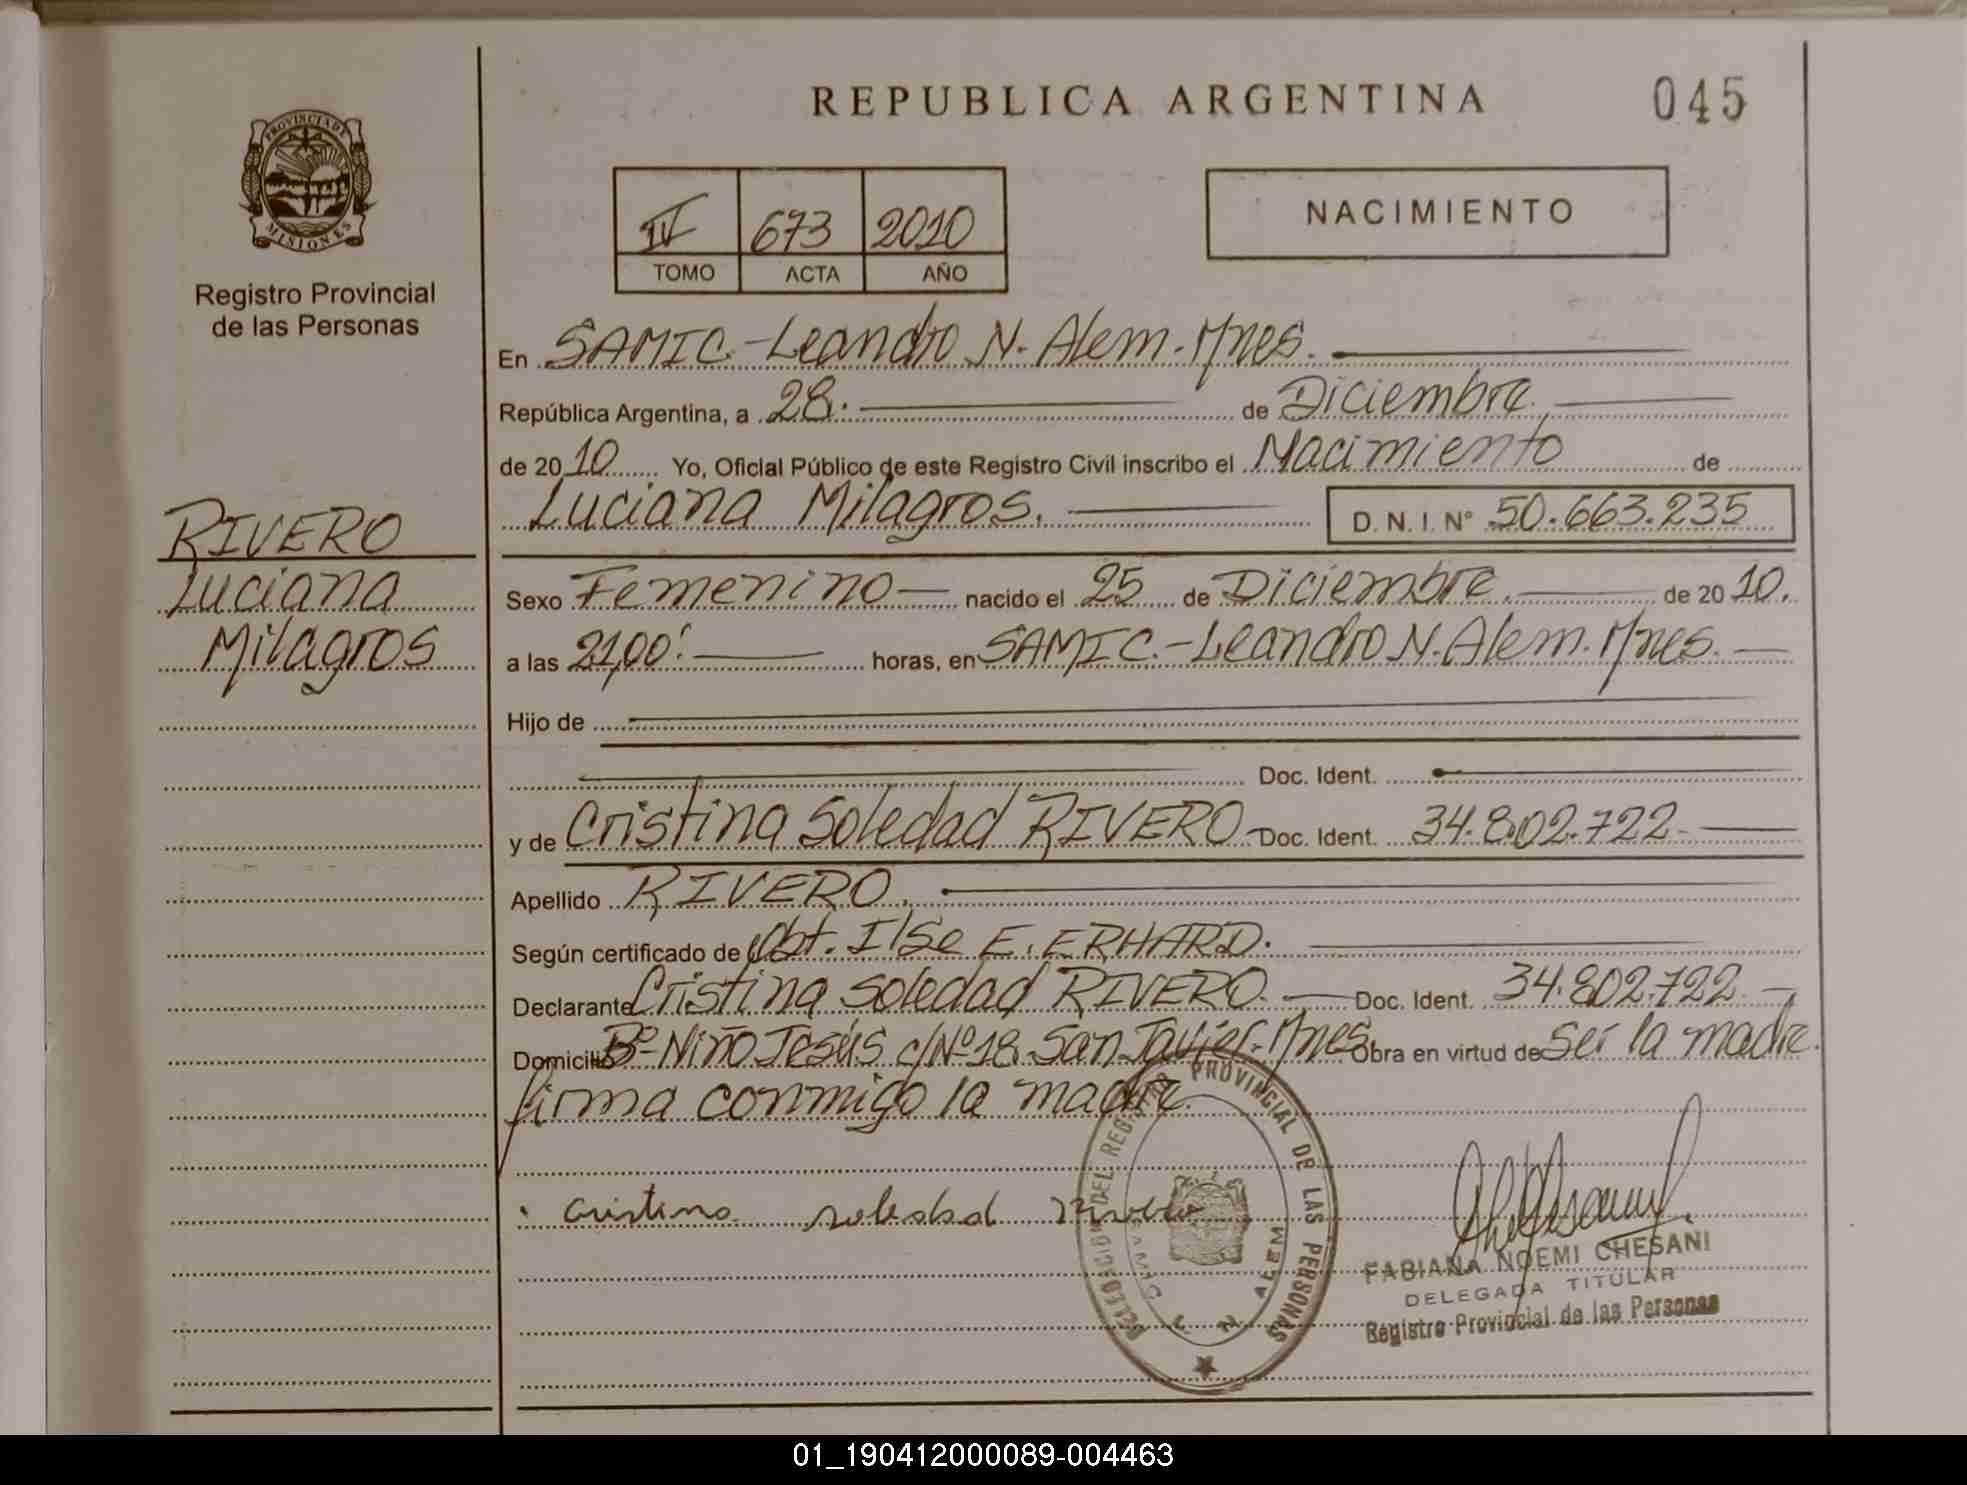 REPUBLICA ARGENTINA
045
PROVINCIA DE
MISIONES
Registro Provincial
de las Personas
IV 673 2010
TOMO ACTA AÑO
NACIMIENTO
En SAMIC.-Leandro N. Alem. Mnes.
República Argentina, a 28. de Diciembre.
de 2010 Yo, Oficial Público de este Registro Civil inscribo el Nacimiento de
Luciana Milagros.
D. N. I. N° 50.663.235
RIVERO
Luciana
Milagros
Sexo Femenino nacido el 25 de Diciembre. de 2010.
a las 21,00. horas, en SAMIC.-Leandro N. Alem. Mnes.
Hijo de
Doc. Ident.
y de Cristina Soledad RIVERO Doc. Ident. 34.802.722.
Apellido RIVERO.
Según certificado de Obt. Ilse E. ERHARD.
Declarante Cristina Soledad RIVERO. Doc. Ident. 34.802.722.
Domicilio B°-Niño Jesús c/N°18. San Javier. Mnes. Obra en virtud de Ser la madre.
firma conmigo la madre.
Cristina soledad Rivero
DELEGACION DEL REGISTRO PROVINCIAL DE LAS PERSONAS
SAMIC L. N. ALEM
FABIANA NOEMI CHESANI
DELEGADA TITULAR
Registro Provincial de las Personas
01_190412000089-004463